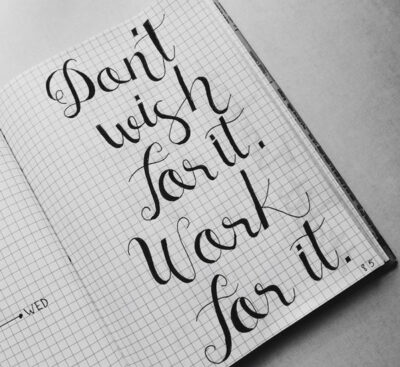 Don't
wish
for it.
Work
for it.
WED
85